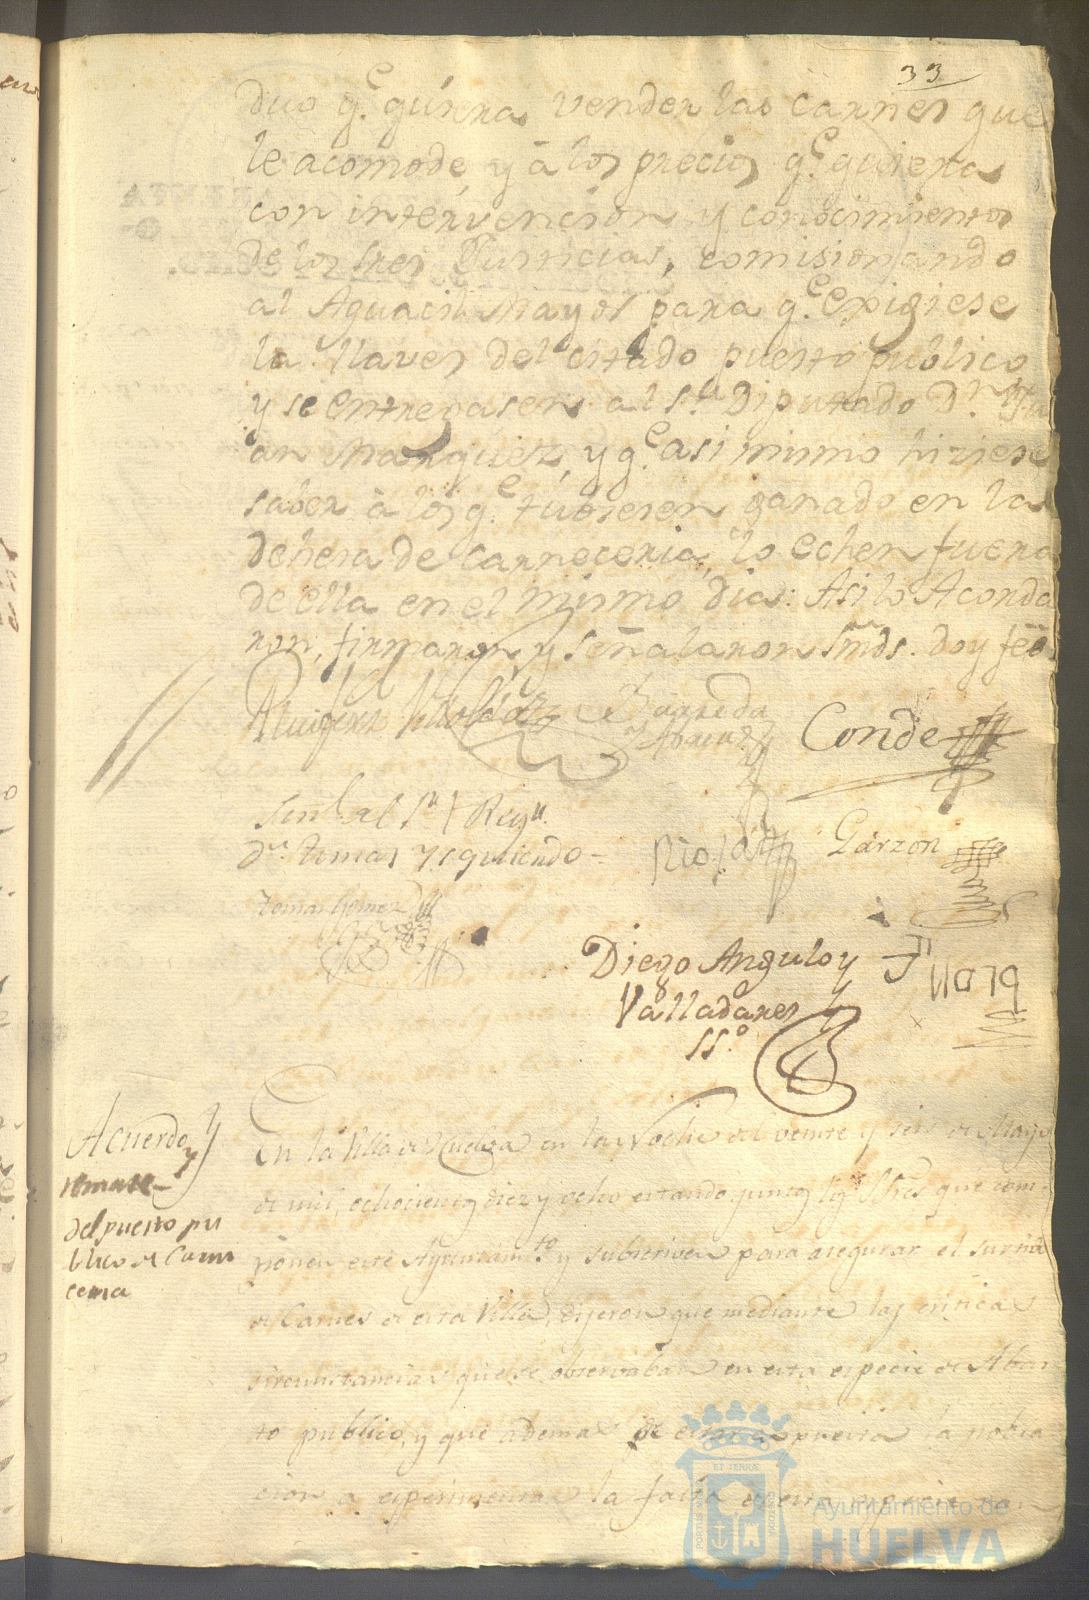 33
duo q.e quiera vender las carnes que
le acomode, y à los precios q.e quiera
con intervencion y conocimiento
de los tres Justicias, comisionando
al Aguacil Mayor para q.e expigiese
la llaves del citado puesto publico
y se entregasen al s.r Diputado D.n Ju
an Marquez, y q.e asi mismo hiziese
saber à los q.e tubiesen ganado en la
dehesa de carneceria, lo echen fuera
de ella en el mismo dia: Asi lo Acorda
ron, firmaron, y señalaron Smds. doy feè
Barreda
Conde
Señal al S.r Rex.r
D.n Tomas Yzquierdo =
Rioja
Garzon
Tomas Gomez
Diego Angulo y
Valladares
ss.o
Acuerdo y
remate
del puesto pu
blico de Carni
ceria
En la Villa de Huelva en la Noche del veinte y seis de Mayo
de mil, ochocientos diez y ocho estando juntos los Sres. que com-
ponen este Ayuntam.to y subscriven para asegurar el surtido
de Carnes de esta Villa, dijeron que mediante las criticas
circunstancias que se observaban en esta especie de Abas
to publico, y que ademas de estar expuesta la pobla
cion a esperimentar la falta
Ayuntamiento de
HUELVA